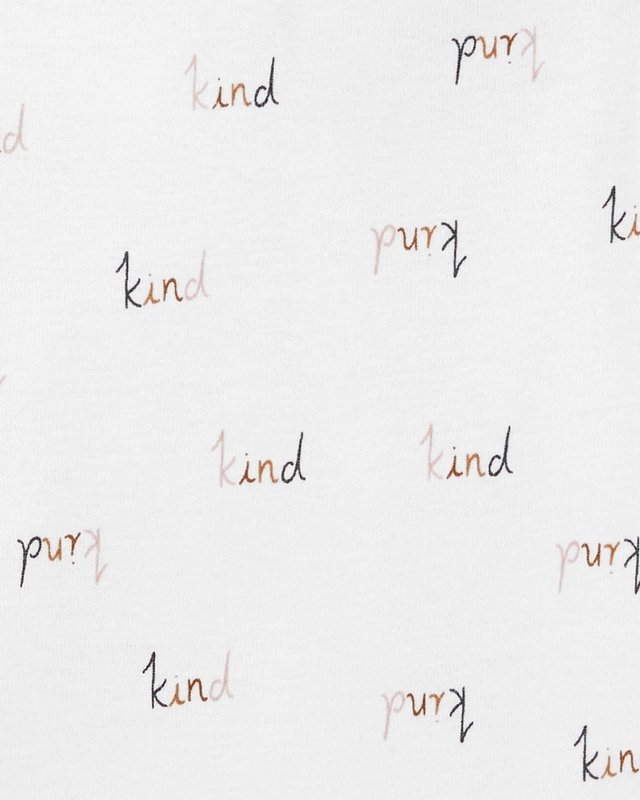 kind
kind
d
ki
kind
kind
kind
kind
kind
kind
kind
kind
kin